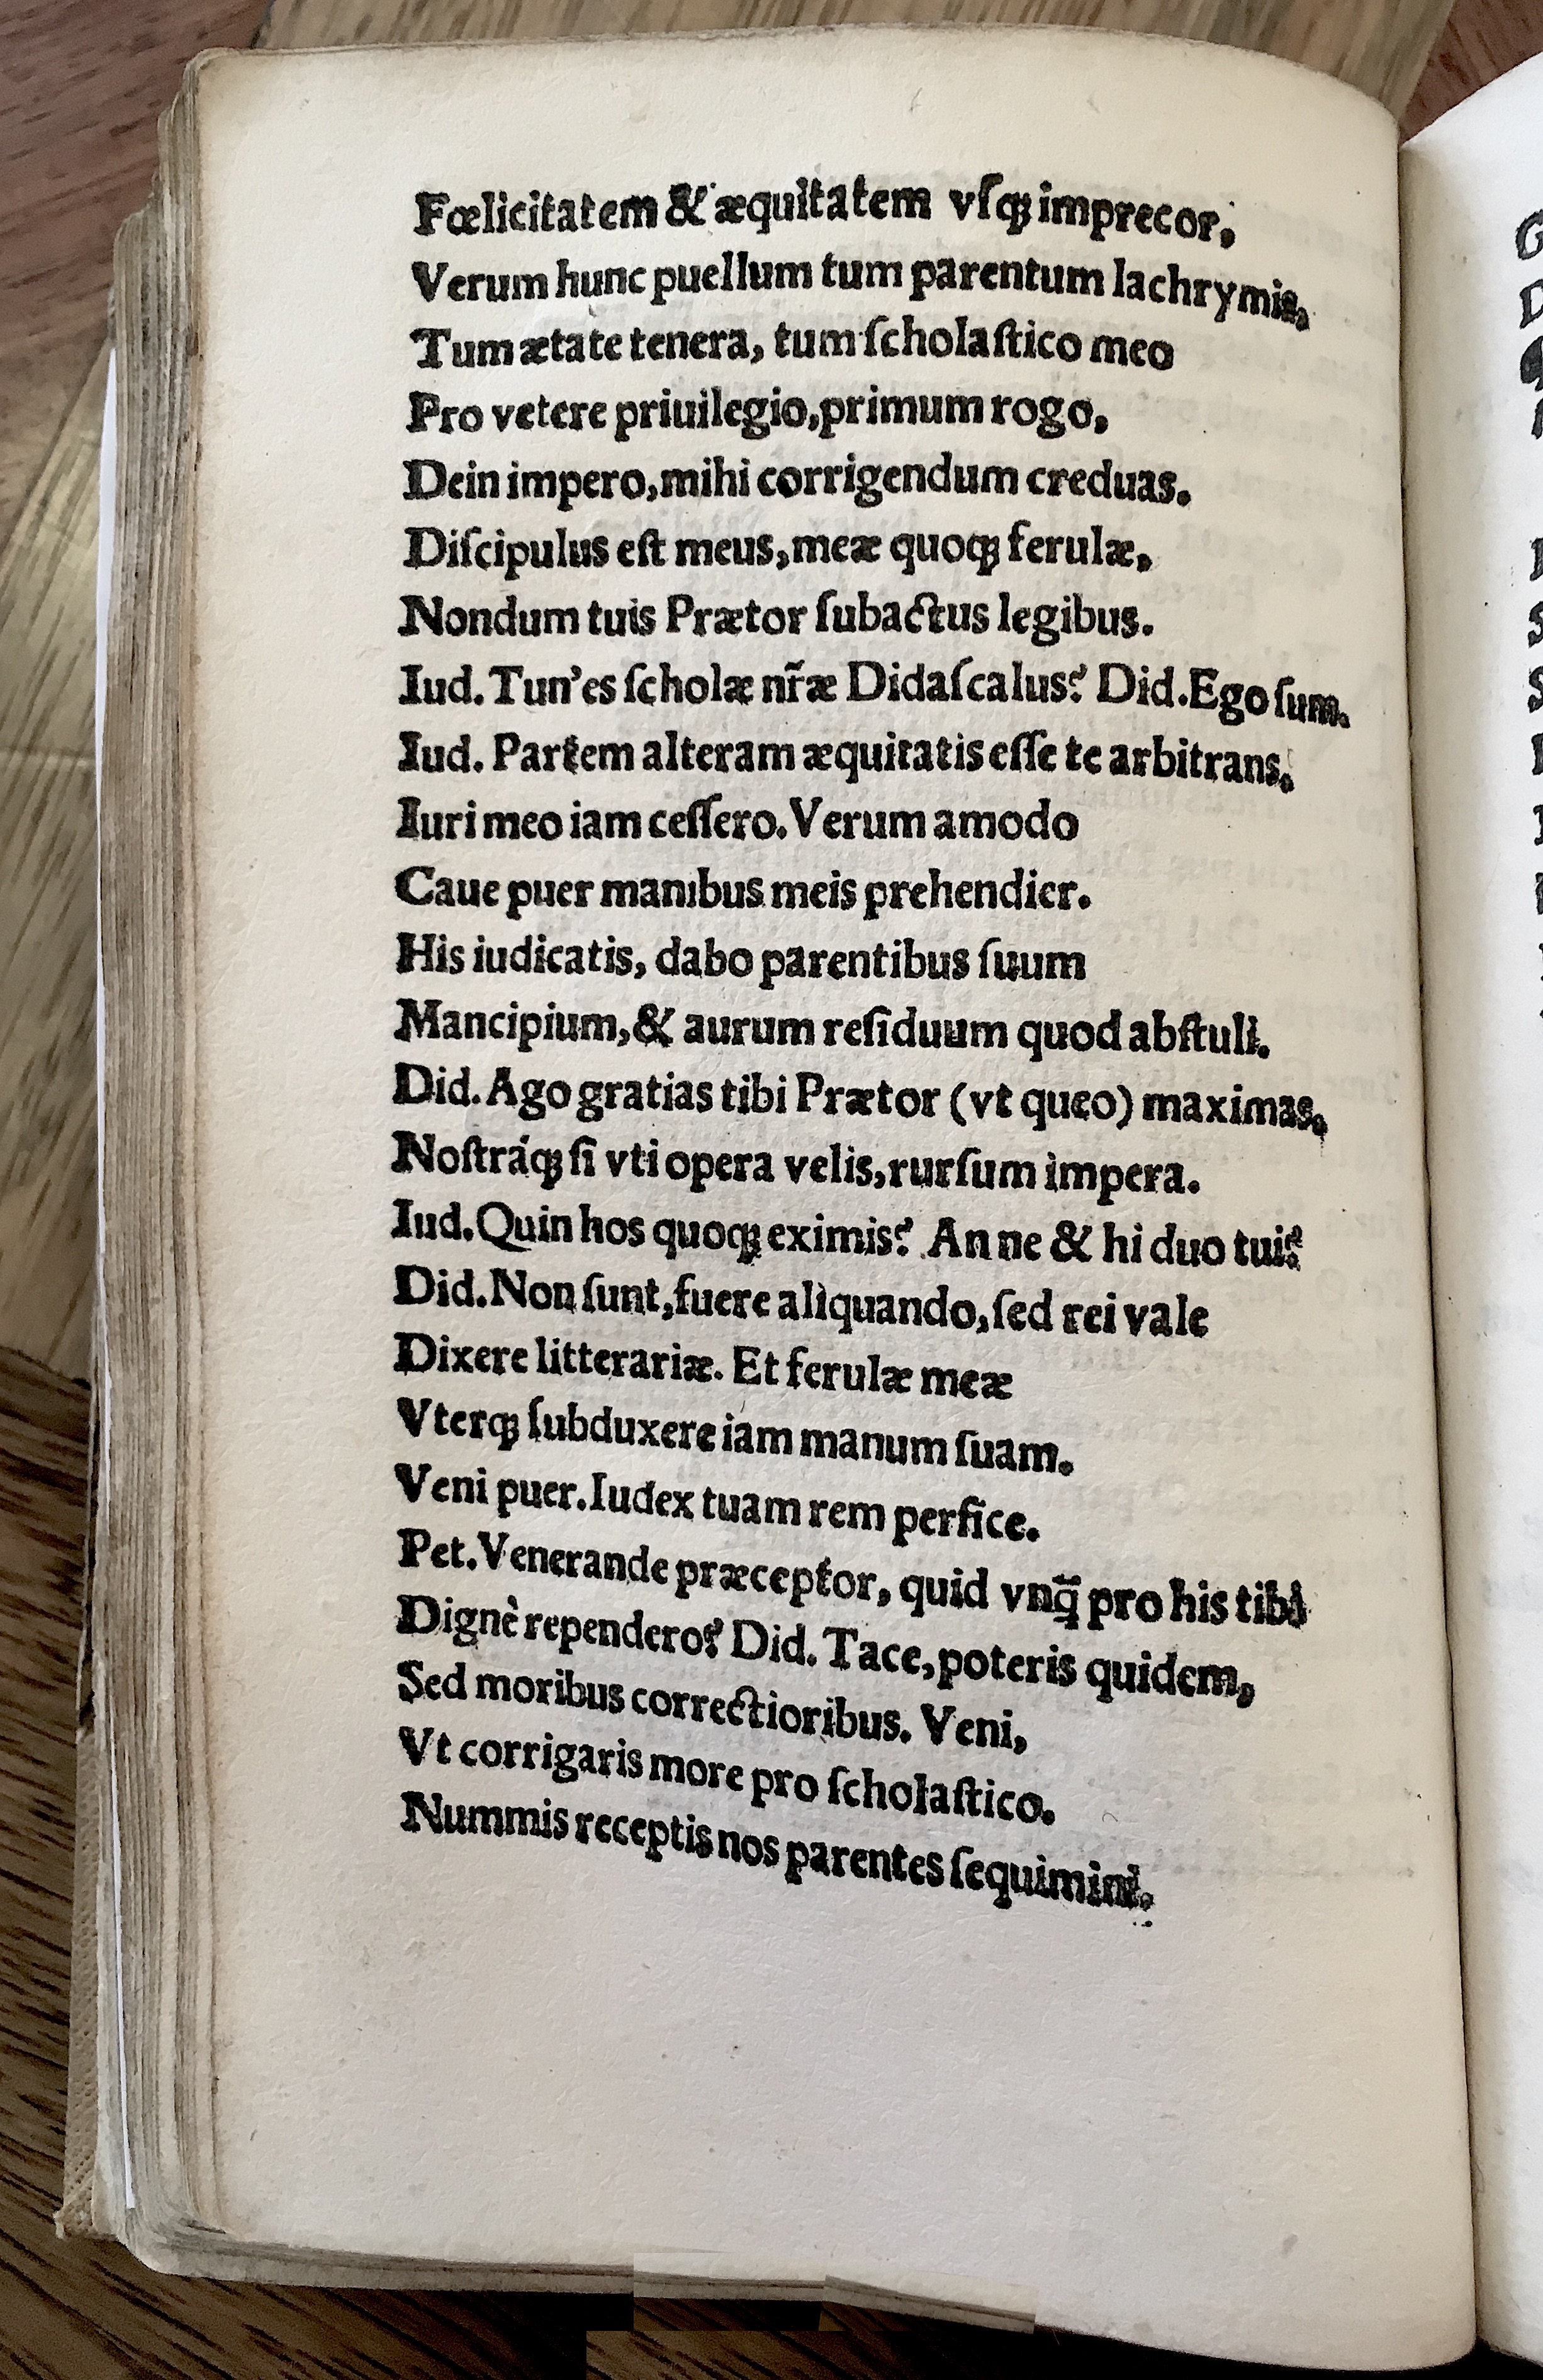 Fœlicitatem & æquitatem vſqꝫ imprecor,
Verum hunc puellum tum parentum lachrymis,
Tum ætate tenera, tum ſcholaſtico meo
Pro vetere priuilegio, primum rogo,
Dein impero, mihi corrigendum creduas.
Diſcipulus eſt meus, meæ quoqꝫ ferulæ,
Nondum tuis Prætor ſubactus legibus.
Iud. Tun'es ſcholæ nr̃æ Didaſcalus? Did. Ego ſum.
Iud. Partem alteram æquitatis eſſe te arbitrans,
Iuri meo iam ceſſero. Verum amodo
Caue puer manibus meis prehendier.
His iudicatis, dabo parentibus ſuum
Mancipium, & aurum reſiduum quod abſtuli.
Did. Ago gratias tibi Prætor (vt queo) maximas,
Noſtráqꝫ ſi vti opera velis, rurſum impera.
Iud. Quin hos quoqꝫ eximis? An ne & hi duo tui?
Did. Non ſunt, fuere aliquando, ſed rei vale
Dixere litterariæ. Et ferulæ meæ
Vterqꝫ ſubduxere iam manum ſuam.
Veni puer. Iudex tuam rem perfice.
Pet. Venerande præceptor, quid vnq̃ pro his tibi
Dignè rependero? Did. Tace, poteris quidem,
Sed moribus correctioribus. Veni,
Vt corrigaris more pro ſcholaſtico.
Nummis receptis nos parentes ſequimini.